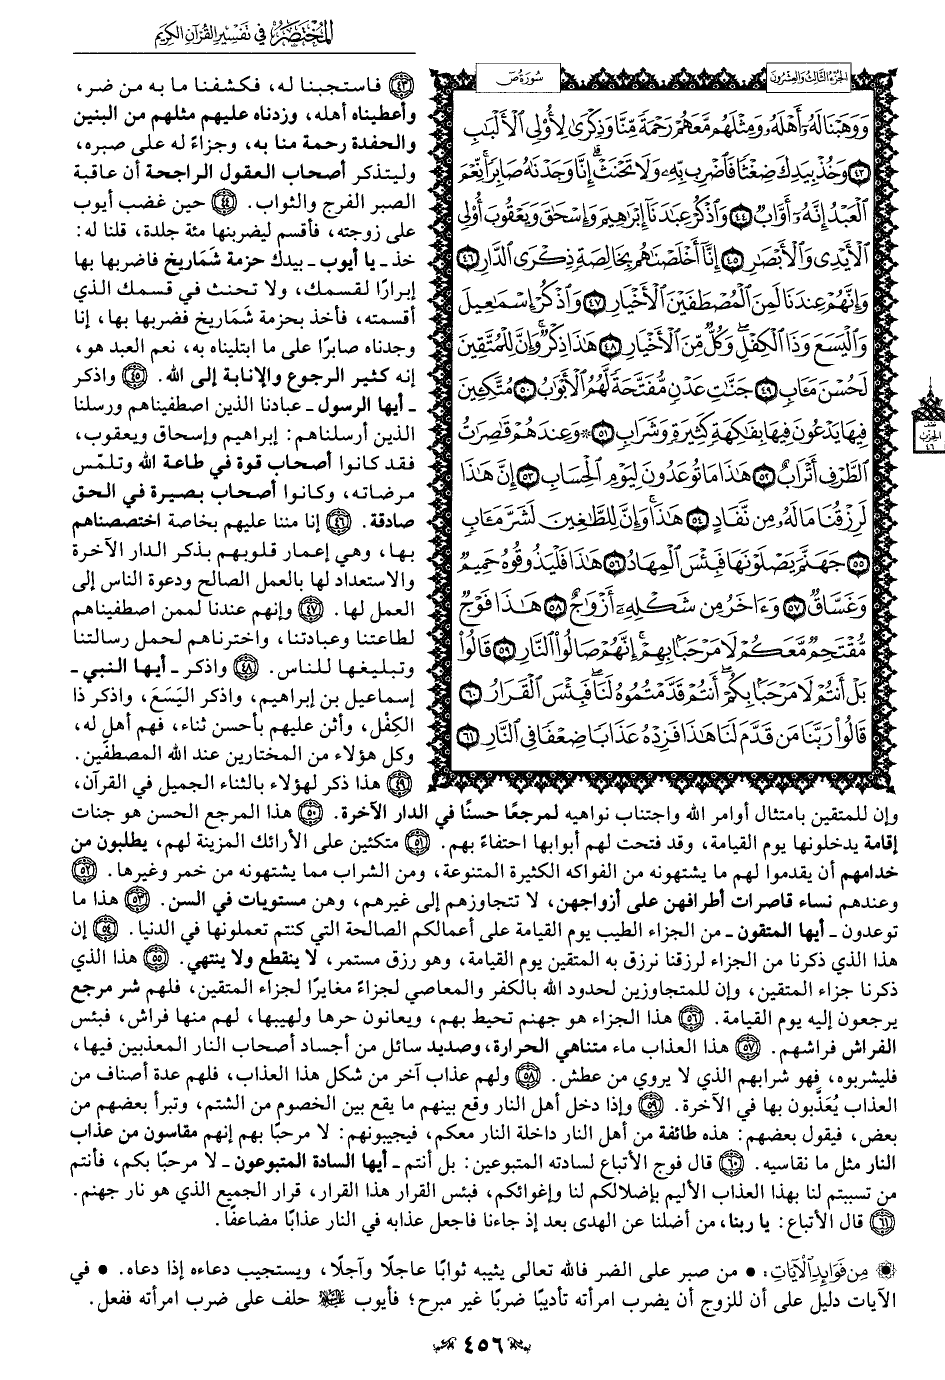 المختصر في تفسير القرآن الكريم
الجزء الثالث والعشرون
سورة ص
وَوَهَبْنَا لَهُۥٓ أَهْلَهُۥ وَمِثْلَهُم مَّعَهُمْ رَحْمَةً مِّنَّا وَذِكْرَىٰ لِأُو۟لِى ٱلْأَلْبَٰبِ
٤٣ وَخُذْ بِيَدِكَ ضِغْثًا فَٱضْرِب بِّهِۦ وَلَا تَحْنَثْ ۗ إِنَّا وَجَدْنَٰهُ صَابِرًا ۚ نِّعْمَ
ٱلْعَبْدُ ۖ إِنَّهُۥٓ أَوَّابٌ ٤٤ وَٱذْكُرْ عِبَٰدَنَآ إِبْرَٰهِيمَ وَإِسْحَٰقَ وَيَعْقُوبَ أُو۟لِى
ٱلْأَيْدِى وَٱلْأَبْصَٰرِ ٤٥ إِنَّآ أَخْلَصْنَٰهُم بِخَالِصَةٍ ذِكْرَى ٱلدَّارِ ٤٦
وَإِنَّهُمْ عِندَنَا لَمِنَ ٱلْمُصْطَفَيْنَ ٱلْأَخْيَارِ ٤٧ وَٱذْكُرْ إِسْمَٰعِيلَ
وَٱلْيَسَعَ وَذَا ٱلْكِفْلِ ۖ وَكُلٌّ مِّنَ ٱلْأَخْيَارِ ٤٨ هَٰذَا ذِكْرٌ ۚ وَإِنَّ لِلْمُتَّقِينَ
لَحُسْنَ مَـَٔابٍ ٤٩ جَنَّٰتِ عَدْنٍ مُّفَتَّحَةً لَّهُمُ ٱلْأَبْوَٰبُ ٥٠ مُتَّكِـِٔينَ
فِيهَا يَدْعُونَ فِيهَا بِفَٰكِهَةٍ كَثِيرَةٍ وَشَرَابٍ ٥١ ۞ وَعِندَهُمْ قَٰصِرَٰتُ
ٱلطَّرْفِ أَتْرَابٌ ٥٢ هَٰذَا مَا تُوعَدُونَ لِيَوْمِ ٱلْحِسَابِ ٥٣ إِنَّ هَٰذَا
لَرِزْقُنَا مَا لَهُۥ مِن نَّفَادٍ ٥٤ هَٰذَا ۚ وَإِنَّ لِلطَّٰغِينَ لَشَرَّ مَـَٔابٍ
٥٥ جَهَنَّمَ يَصْلَوْنَهَا فَبِئْسَ ٱلْمِهَادُ ٥٦ هَٰذَا فَلْيَذُوقُوهُ حَمِيمٌ
وَغَسَّاقٌ ٥٧ وَءَاخَرُ مِن شَكْلِهِۦٓ أَزْوَٰجٌ ٥٨ هَٰذَا فَوْجٌ
مُّقْتَحِمٌ مَّعَكُمْ ۖ لَا مَرْحَبًۢا بِهِمْ ۚ إِنَّهُمْ صَالُوا۟ ٱلنَّارِ ٥٩ قَالُوا۟
بَلْ أَنتُمْ لَا مَرْحَبًۢا بِكُمْ ۖ أَنتُمْ قَدَّمْتُمُوهُ لَنَا ۖ فَبِئْسَ ٱلْقَرَارُ ٦٠
قَالُوا۟ رَبَّنَا مَن قَدَّمَ لَنَا هَٰذَا فَزِدْهُ عَذَابًا ضِعْفًا فِى ٱلنَّارِ ٦١
نصف
الحزب
٤٦
٤٣ فاستجبنا له، فكشفنا ما به من ضر،
وأعطيناه أهله، وزدناه عليهم مثلهم من البنين
والحفدة رحمة منا به، وجزاءً له على صبره،
وليتذكر أصحاب العقول الراجحة أن عاقبة
الصبر الفرج والثواب. ٤٤ حين غضب أيوب
على زوجته، فأقسم ليضربنها مئة جلدة، قلنا له:
خذ ـ يا أيوب ـ بيدك حزمة شَمَاريخ فاضربها بها
إبرارًا لقسمك، ولا تحنث في قسمك الذي
أقسمته، فأخذ بحزمة شَمَاريخ فضربها بها، إنا
وجدناه صابرًا على ما ابتليناه به، نعم العبد هو،
إنه كثير الرجوع والإنابة إلى الله. ٤٥ واذكر
ـ أيها الرسول ـ عبادنا الذين اصطفيناهم ورسلنا
الذين أرسلناهم: إبراهيم وإسحاق ويعقوب،
فقد كانوا أصحاب قوة في طاعة الله وتلمّس
مرضاته، وكانوا أصحاب بصيرة في الحق
صادقة. ٤٦ إنا مننا عليهم بخاصة اختصصناهم
بها، وهي إعمار قلوبهم بذكر الدار الآخرة
والاستعداد لها بالعمل الصالح ودعوة الناس إلى
العمل لها. ٤٧ وإنهم عندنا لممن اصطفيناهم
لطاعتنا وعبادتنا، واخترناهم لحمل رسالتنا
وتبليغها للناس. ٤٨ واذكر ـ أيها النبي ـ
إسماعيل بن إبراهيم، واذكر اليَسَع، واذكر ذا
الكِفْل، وأثن عليهم بأحسن ثناء، فهم أهل له،
وكل هؤلاء من المختارين عند الله المصطفَين.
٤٩ هذا ذكر لهؤلاء بالثناء الجميل في القرآن،
وإن للمتقين بامتثال أوامر الله واجتناب نواهيه لمرجعًا حسنًا في الدار الآخرة. ٥٠ هذا المرجع الحسن هو جنات
إقامة يدخلونها يوم القيامة، وقد فتحت لهم أبوابها احتفاءً بهم. ٥١ متكئين على الأرائك المزينة لهم، يطلبون من
خدامهم أن يقدموا لهم ما يشتهونه من الفواكه الكثيرة المتنوعة، ومن الشراب مما يشتهونه من خمر وغيرها. ٥٢
وعندهم نساء قاصرات أطرافهن على أزواجهن، لا تتجاوزهم إلى غيرهم، وهن مستويات في السن. ٥٣ هذا ما
توعدون ـ أيها المتقون ـ من الجزاء الطيب يوم القيامة على أعمالكم الصالحة التي كنتم تعملونها في الدنيا. ٥٤ إن
هذا الذي ذكرنا من الجزاء لرزقنا نرزق به المتقين يوم القيامة، وهو رزق مستمر، لا ينقطع ولا ينتهي. ٥٥ هذا الذي
ذكرنا جزاء المتقين، وإن للمتجاوزين لحدود الله بالكفر والمعاصي لجزاءً مغايرًا لجزاء المتقين، فلهم شر مرجع
يرجعون إليه يوم القيامة. ٥٦ هذا الجزاء هو جهنم تحيط بهم، ويعانون حرها ولهيبها، لهم منها فراش، فبئس
الفراش فراشهم. ٥٧ هذا العذاب ماء متناهي الحرارة، وصديد سائل من أجساد أصحاب النار المعذبين فيها،
فليشربوه، فهو شرابهم الذي لا يروي من عطش. ٥٨ ولهم عذاب آخر من شكل هذا العذاب، فلهم عدة أصناف من
العذاب يُعَذَّبون بها في الآخرة. ٥٩ وإذا دخل أهل النار وقع بينهم ما يقع بين الخصوم من الشتم، وتبرأ بعضهم من
بعض، فيقول بعضهم: هذه طائفة من أهل النار داخلة النار معكم، فيجيبونهم: لا مرحبًا بهم إنهم مقاسون من عذاب
النار مثل ما نقاسيه. ٦٠ قال فوج الأتباع لسادته المتبوعين: بل أنتم ـ أيها السادة المتبوعون ـ لا مرحبًا بكم، فأنتم
من تسببتم لنا بهذا العذاب الأليم بإضلالكم لنا وإغوائكم، فبئس القرار هذا القرار، قرار الجميع الذي هو نار جهنم.
٦١ قال الأتباع: يا ربنا، من أضلنا عن الهدى بعد إذ جاءنا فاجعل عذابه في النار عذابًا مضاعفًا.
من فوائد الآيات: • من صبر على الضر فالله تعالى يثيبه ثوابًا عاجلًا وآجلًا، ويستجيب دعاءه إذا دعاه. • في
الآيات دليل على أن للزوج أن يضرب امرأته تأديبًا ضربًا غير مبرح؛ فأيوب حلف على ضرب امرأته ففعل.
٤٥٦